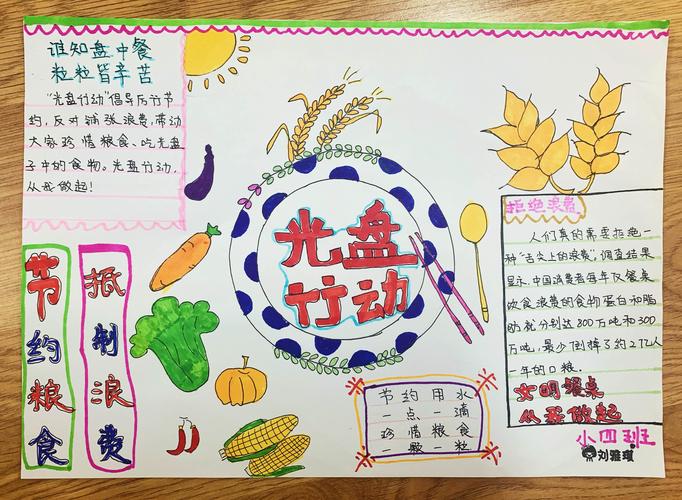 谁知盘中餐
粒粒皆辛苦
"光盘行动"倡导厉行节
约,反对铺张浪费,带动
大家珍惜粮食、吃光盘
子中的食物。光盘行动,
从我做起!
光盘
行动
节约粮食
抵制浪费
拒绝浪费
人们真的需要拒绝一
种"舌尖上的浪费",调查结果
显示,中国消费者每年仅餐桌
饮食浪费的食物蛋白和脂
肪就分别达800万吨和300
万吨,最少倒掉了约2亿人
一年的口粮。
文明餐桌
从我做起
节约用水
一点一滴
珍惜粮食
一颗一粒
小四班
刘雅琪